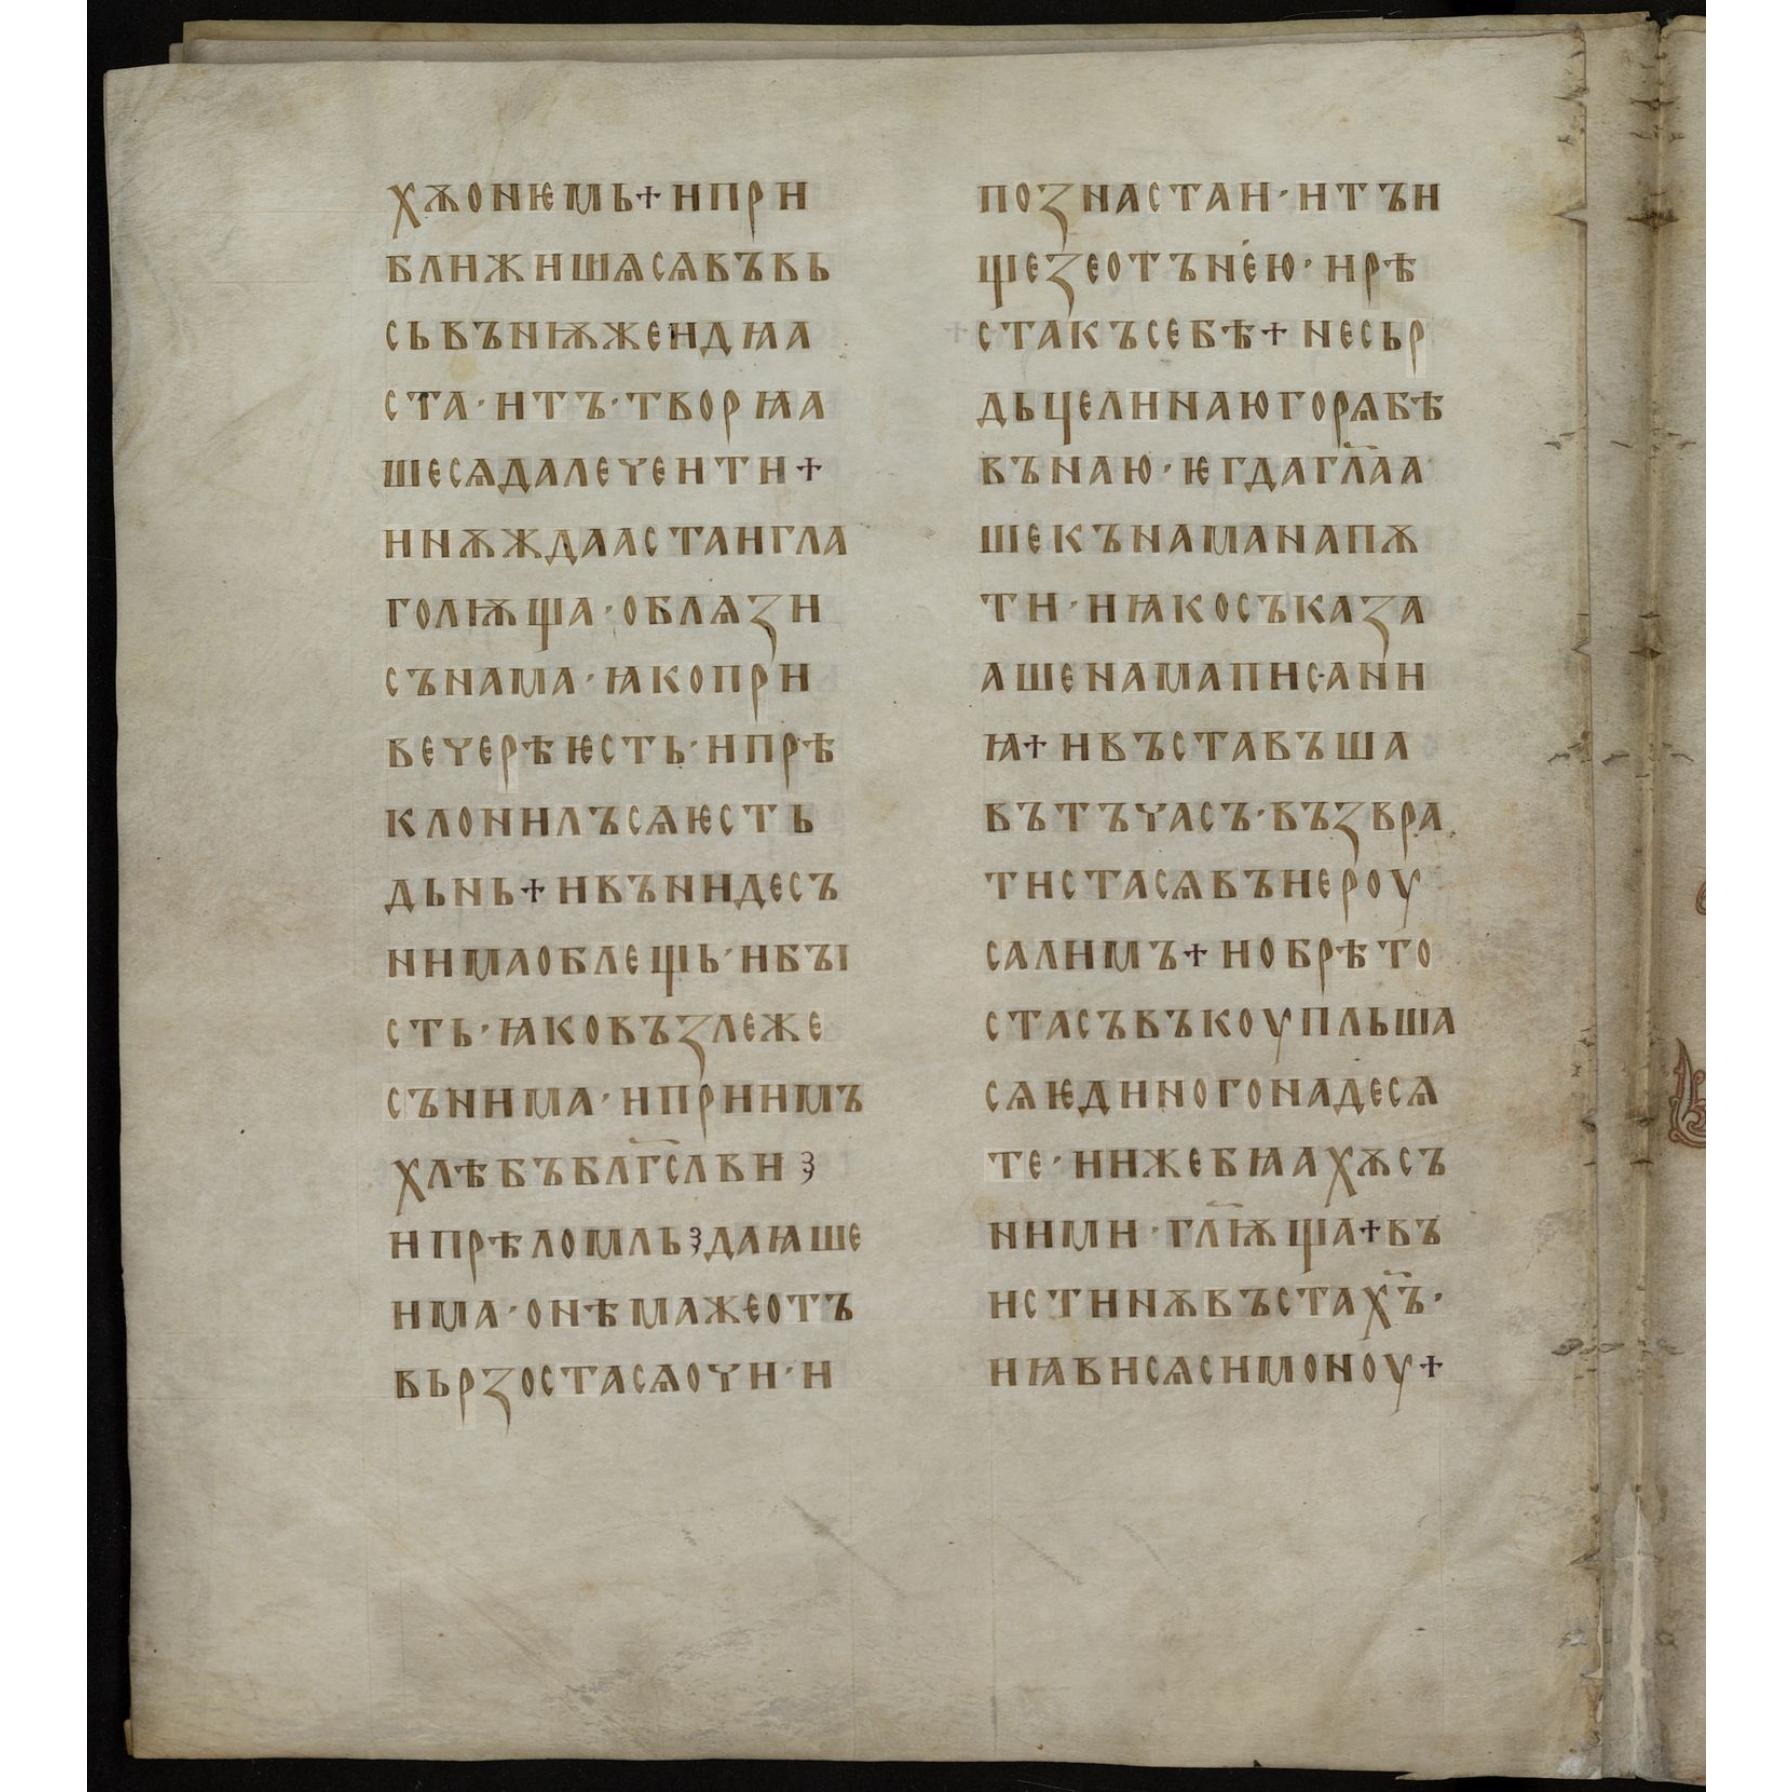 хѫонѥмь+ипри
ближишѧсѧвъвь
сьвънѭжеидꙗа
ста·итъ·творꙗа
шесѧдалечеити+
инѫждаастаигла
голѭща·облѧзи
сънама·ꙗкопри
вечерѣѥсть·ипрѣ
клонилъсѧѥсть
дьнь+ивънидесъ
нимаоблещь·ибꙑ
сть·ꙗковъзлеже
сънима·иприимъ
хлѣбъблг҃слвиꙁ
ипрѣломльꙁдаꙗше
има·онѣмажеотъ
вьрзостасѧочи·и
познастаи·итъи
щезеотъне́ю·ирѣ
стакъсебѣ+несьр
дьцелинаюгорѧбѣ
вънаю·ѥгдагл҃аа
шекънаманапѫ
ти·иꙗкосъказа
ашенамапис·ани
ꙗ+ивъставъша
вътъчасъ·възвра
тистасѧвъиероу
салимъ+иобрѣто
стасъвъкоупльша
сѧѥдиногонадесѧ
те·иижебꙗахѫсъ
ними·гл҃ѭща+въ
истинѫвъстах҃ъ·
иꙗвисѧсимоноу+